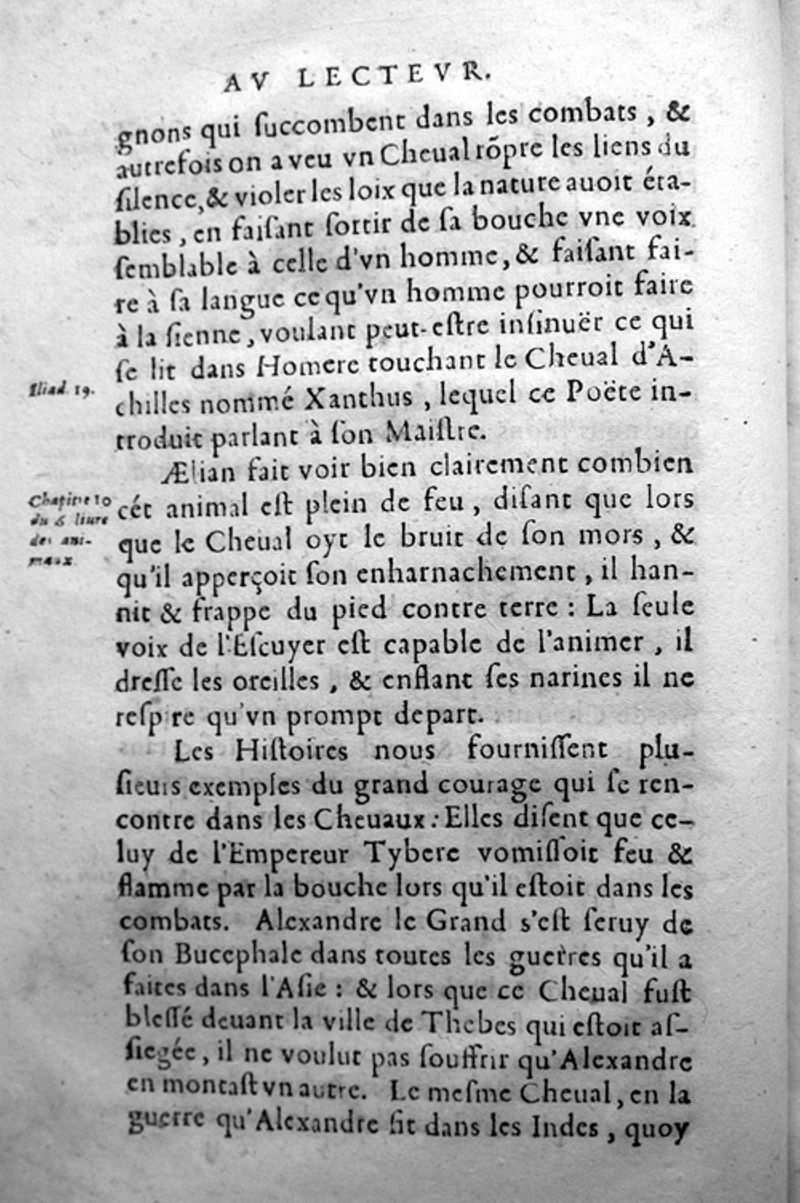 AV LECTEVR.
gnons qui ſuccombent dans les combats, &
autrefois on a veu vn Cheual rõpre les liens du
ſilence, & violer les loix que la nature auoit éta-
blies, en faiſant ſortir de ſa bouche vne voix
ſemblable à celle d'vn homme, & faiſant fai-
re à ſa langue ce qu'vn homme pourroit faire
à la ſienne, voulant peut-eſtre inſinuër ce qui
ſe lit dans Homere touchant le Cheual d'A-
Iliad. 19.
chilles nommé Xanthus, lequel ce Poëte in-
troduit parlant à ſon Maiſtre.
Ælian fait voir bien clairement combien
Chapitre 10
du 6 liure
des ani-
maux
cét animal eſt plein de feu, diſant que lors
que le Cheual oyt le bruit de ſon mors, &
qu'il apperçoit ſon enharnachement, il han-
nit & frappe du pied contre terre : La ſeule
voix de l'Eſcuyer eſt capable de l'animer, il
dreſſe les oreilles, & enflant ſes narines il ne
reſpire qu'vn prompt depart.
Les Hiſtoires nous fourniſſent plu-
ſieurs exemples du grand courage qui ſe ren-
contre dans les Cheuaux : Elles diſent que ce-
luy de l'Empereur Tybere vomiſſoit feu &
flamme par la bouche lors qu'il eſtoit dans les
combats. Alexandre le Grand s'eſt ſeruy de
ſon Bucephale dans toutes les guerres qu'il a
faites dans l'Aſie : & lors que ce Cheual fuſt
bleſſé deuant la ville de Thebes qui eſtoit aſ-
ſiegée, il ne voulut pas ſouffrir qu'Alexandre
en montaſt vn autre. Le meſme Cheual, en la
guerre qu'Alexandre fit dans les Indes, quoy